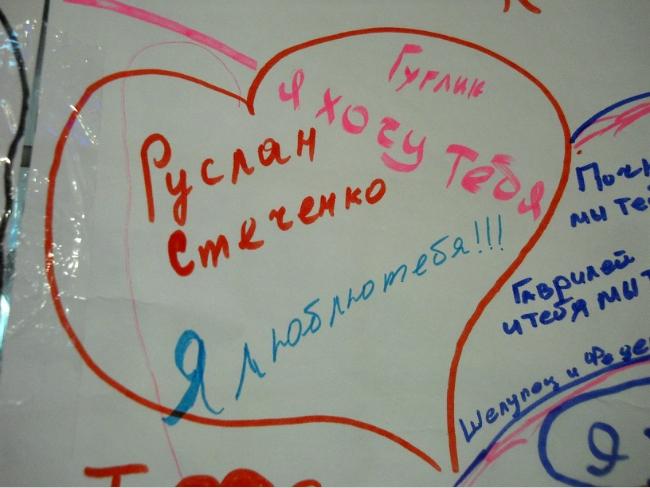 Гуглик
Я хочу тебя
Руслан
Стеченко
Я люблю тебя!!!
мы те
Гаврилей
и тебя мы т
Шелупец и Феде
Я